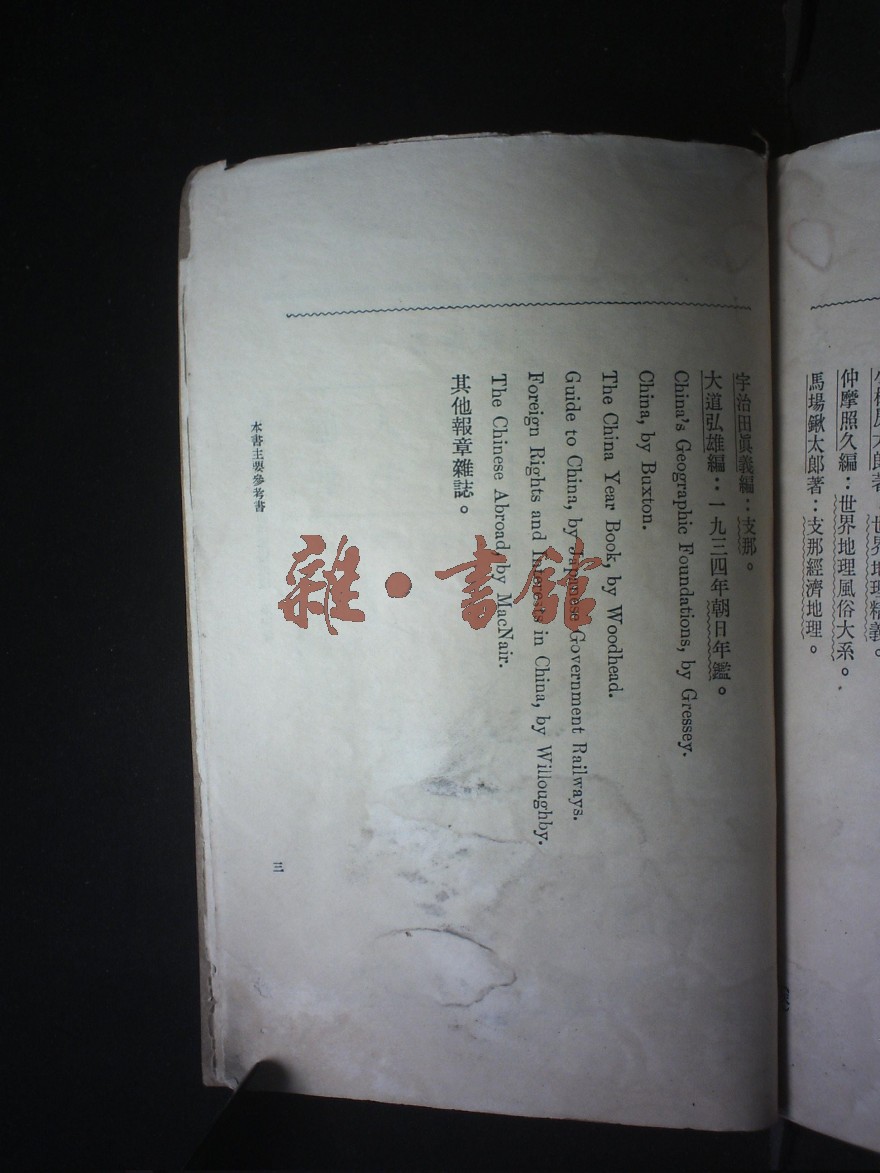 仲摩照久編：世界地理風俗大系。
馬場鍬太郎著：支那經濟地理。
宇治田眞義編：支那。
大道弘雄編：一九三四年朝日年鑑。
China's Geographic Foundations, by Gressey.
China, by Buxton.
The China Year Book, by Woodhead.
Guide to China, by Japanese Government Railways.
Foreign Rights and Interests in China, by Willoughby.
The Chinese Abroad, by MacNair.
其他報章雜誌。
本書主要參考書
三
雜·書館